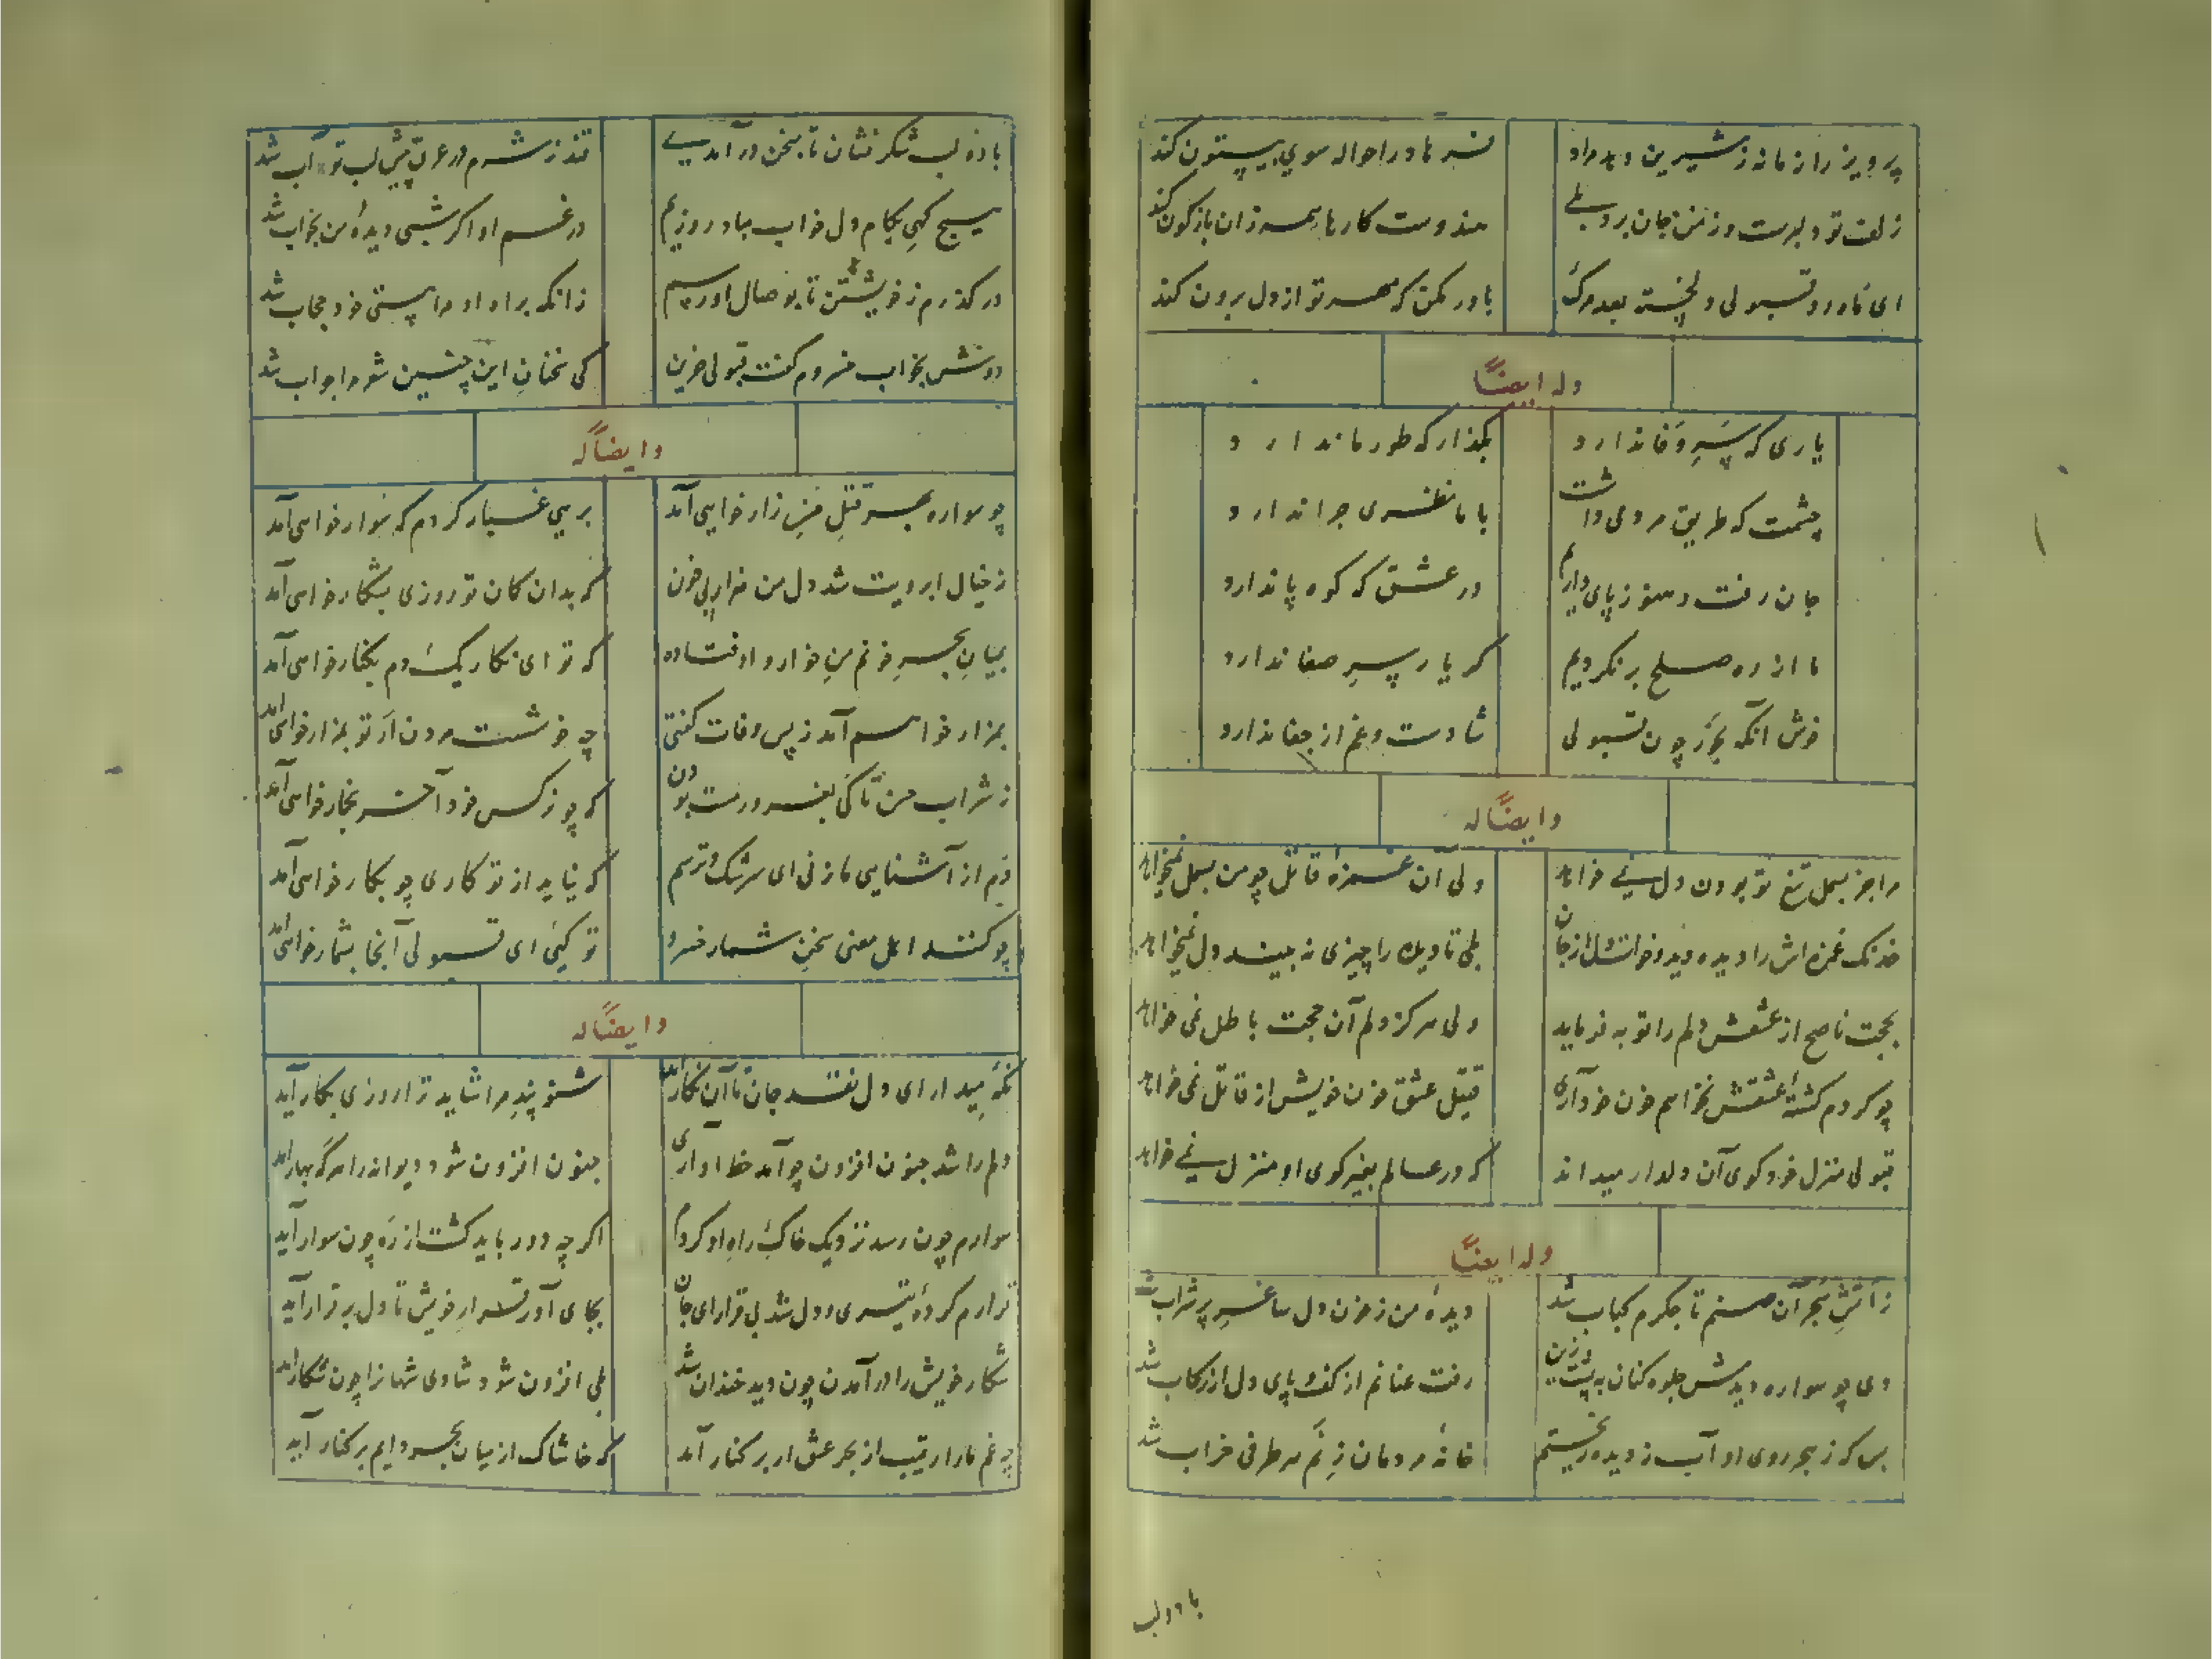 پرویز را زمانه ز شیرین دهد مراد فرهاد را حواله سوی بیستون کند
زلف تو دلبرست وز من جان برد ولی هندوست کارها بسر زان باژگون کند
ای ماه رو قبولی دلخسته بعد مرگ باور مکن که مهر تو از دل برون کند
وله ایضاً
یاری که سَرِ وَفا ندارد بگذار که طور ما ندارد
چشمت که طریق مردمی داشت با ما نظری چرا ندارد
جان رفت و هنوز پای داریم در عشق که کوه پا ندارد
ما از ره صلح برنگردیم گر یار سرِ صفا ندارد
خوش آنکه بجَز چون قبولی شادست و غم از جفا ندارد
وایضاً له
مرا جز بسمل تیغ تو بودن دل نمی خواهد ولی آن غمزهٔ قاتل چو من بسمل نمیخواهد
خدنک غمزه اش را دیده دید و خواست دل از جان بلی تا دیده را چیزی نه بیند دل نمیخواهد
بحجت ناصح از عشقش دلم را توبه فرماید ولی هرگز دلم آن حجت باطل نمی خواهد
چو کردم کشتهٔ عشقش نخواهم خون خود آری قتیل عشق خون خویش از قاتل نمی خواهد
قبولی منزل خود کوی آن دلدار میداند که در عالم بغیر کوی او منزل نمی خواهد
وله ایضاً
زآتشِ هجر آن صنم تا جکرم کباب شد دیدهٔ من ز خون دل ساغرِ پر شراب شد
دی چو سواره دیدمش جلوه کنان به پشت زین رفت عنانم از کف و پای دل از رکاب شد
بس که ز هجر روی او آب ز دیده ریختم خانهٔ مردمان ز نَم هر طرفی خراب شد
با دو لب
با دو لب شکر فشان تا بسخن در آمدی قند ز شرم در عرق پیش لب تو آب شد
هیچ گهی بکام دل خواب مباد روزیم در غم او اگر شبی دیدهٔ من بخواب شد
در گذرم ز خویشتن تا بوصال او رسم زانکه براه او مرا هستی خود حجاب شد
دوش بخواب خوردم گفت قبولی حزین کی سخنان این چنین شو مرا جواب شد
وایضاً له
چو سواره بهر قتلِ منِ زار خواهی آمد برهی غبار گردم که سوار خواهی آمد
ز خیال ابرویت شد دل من هزار پی خون که بدان کمان تو روزی بشکار خواهی آمد
بمیانِ بحرِ خونم منِ خوار و اوفتاده که تو ای نکار یکدم بکنار خواهی آمد
بمزار خواهم آمد ز پس وفات گفتی چه خوشست مردن ار تو بمزار خواهی آمد
ز شراب حسن تا کی بغرور مست بودن که چو نرکس خود آخر بخمار خواهی آمد
دَمِ از آشنایی ما زنی ای سرشک و ترسم که نیاید از تو کاری چو بکار خواهی آمد
چو کنند اهل معنی سخنِ شمار خسرو تو کیَی ای قبولی آنجا بشمار خواهی آمد
وایضاً له
نکَه میدار ای دل نقد جان تا آن نکار آید شنو پندِ مرا شاید ترا روزی بکار آید
دلم را شد جنون افزون چو آمد خط او آری جنون افزون شود دیوانه را هر گه بهار آید
سوارم چون رسد نزدیک خاکِ راه او کردم اگر چه دور باید کشت از رَه چون سوار آید
قرارم کردهٔ تیری و دل شد بی قرار ای جان بجای آور قرارِ خویش تا دل بر قرار آید
شکار خویش را در آمدن چون دید خندان شد بلی افزون شود شادی شهانرا چون شکار آید
چه غم ما را رقیب از بحر عشق ار بر کنار آمد که خاشاک از میان بحر دایم بر کنار آید